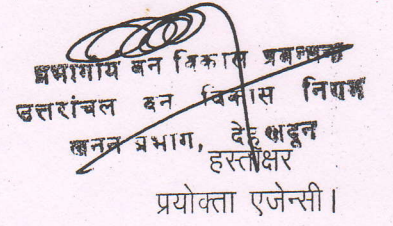 प्रभागीय वन विकास प्रबन्धक
उत्तरांचल वन विकास निगम
खनन प्रभाग, देहरादून
हस्ताक्षर
प्रयोक्ता एजेन्सी।